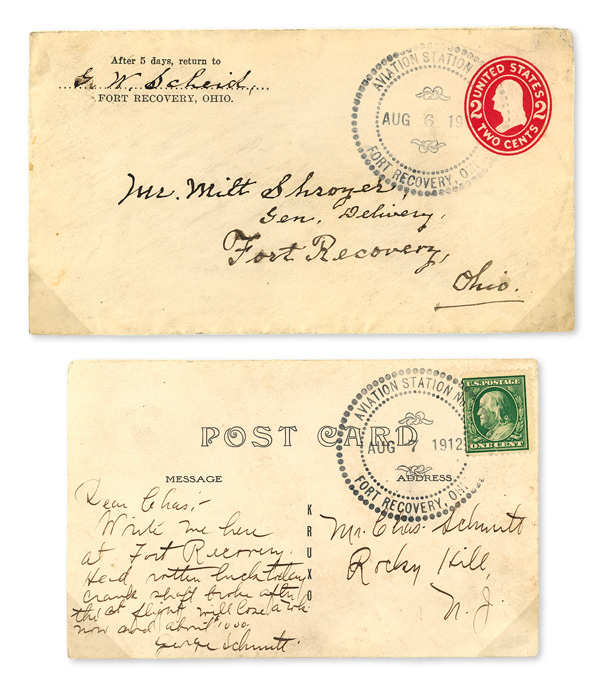 After 5 days, return to
G. W. Scheid,
FORT RECOVERY, OHIO.
AVIATION STATION
AUG 6 19
FORT RECOVERY, O
UNITED STATES
2 2
TWO CENTS
Mr. Milt Shroyer,
Gen. Delivery,
Fort Recovery,
Ohio.
AVIATION STATION
AUG 7 1912
FORT RECOVERY, OHIO
U.S. POSTAGE
ONE CENT
POST CARD
MESSAGE
ADDRESS
KRUXO
Dear Chas:-
Write me here
at Fort Recovery.
Had rotten luck today
crank shaft broke after
the 1st flight, will lose a
now and about $1000.
George Schmitt.
Mr. Chas. Schmitt
Rocky Hill,
N. J.